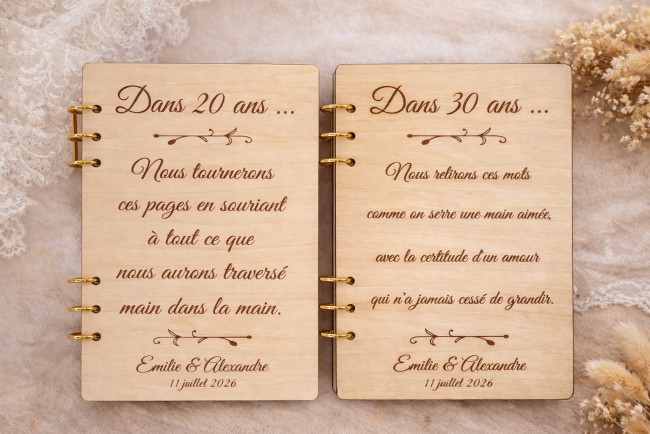 Dans 20 ans ...
Nous tournerons
ces pages en souriant
à tout ce que
nous aurons traversé
main dans la main.
Emilie & Alexandre
11 juillet 2026
Dans 30 ans ...
Nous relirons ces mots
comme on serre une main aimée,
avec la certitude d'un amour
qui n'a jamais cessé de grandir.
Emilie & Alexandre
11 juillet 2026